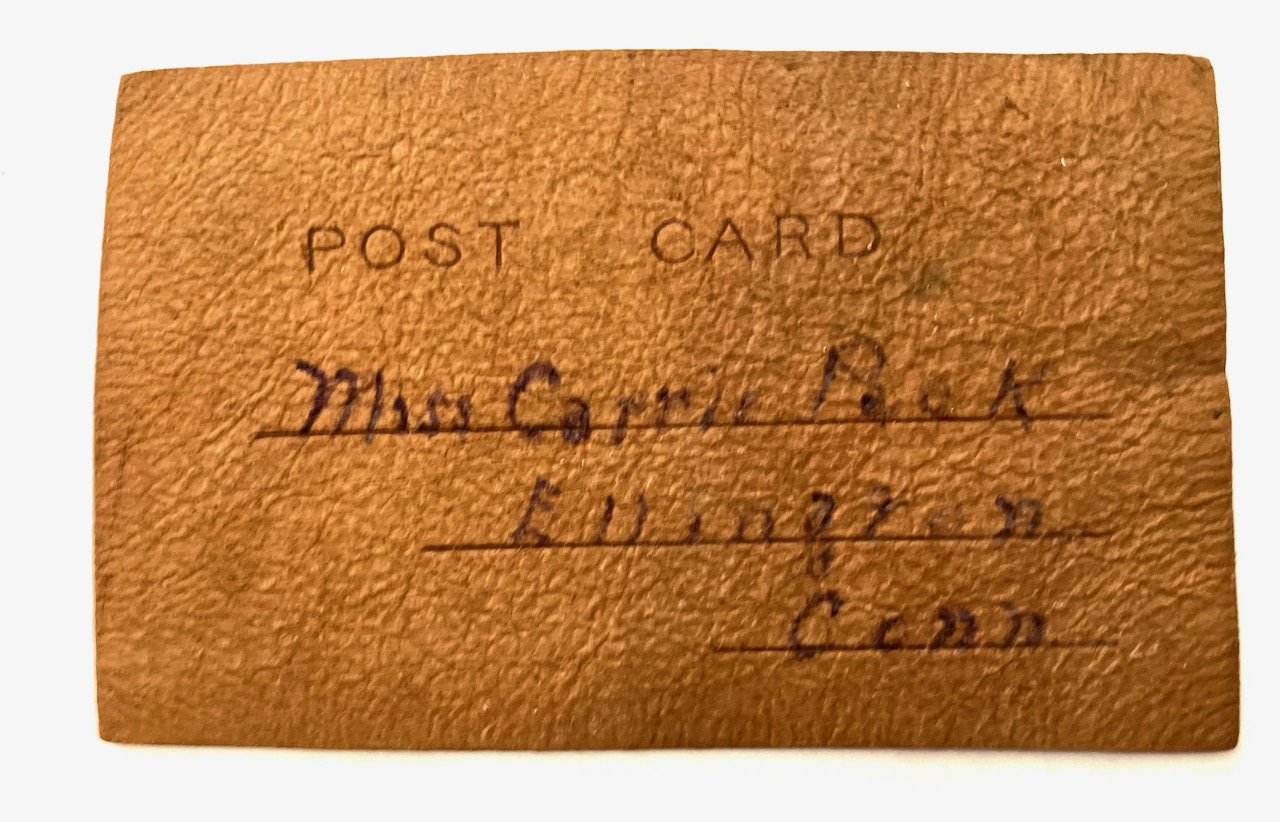 POST CARD
Miss Carrie Peck
Ellington
Conn